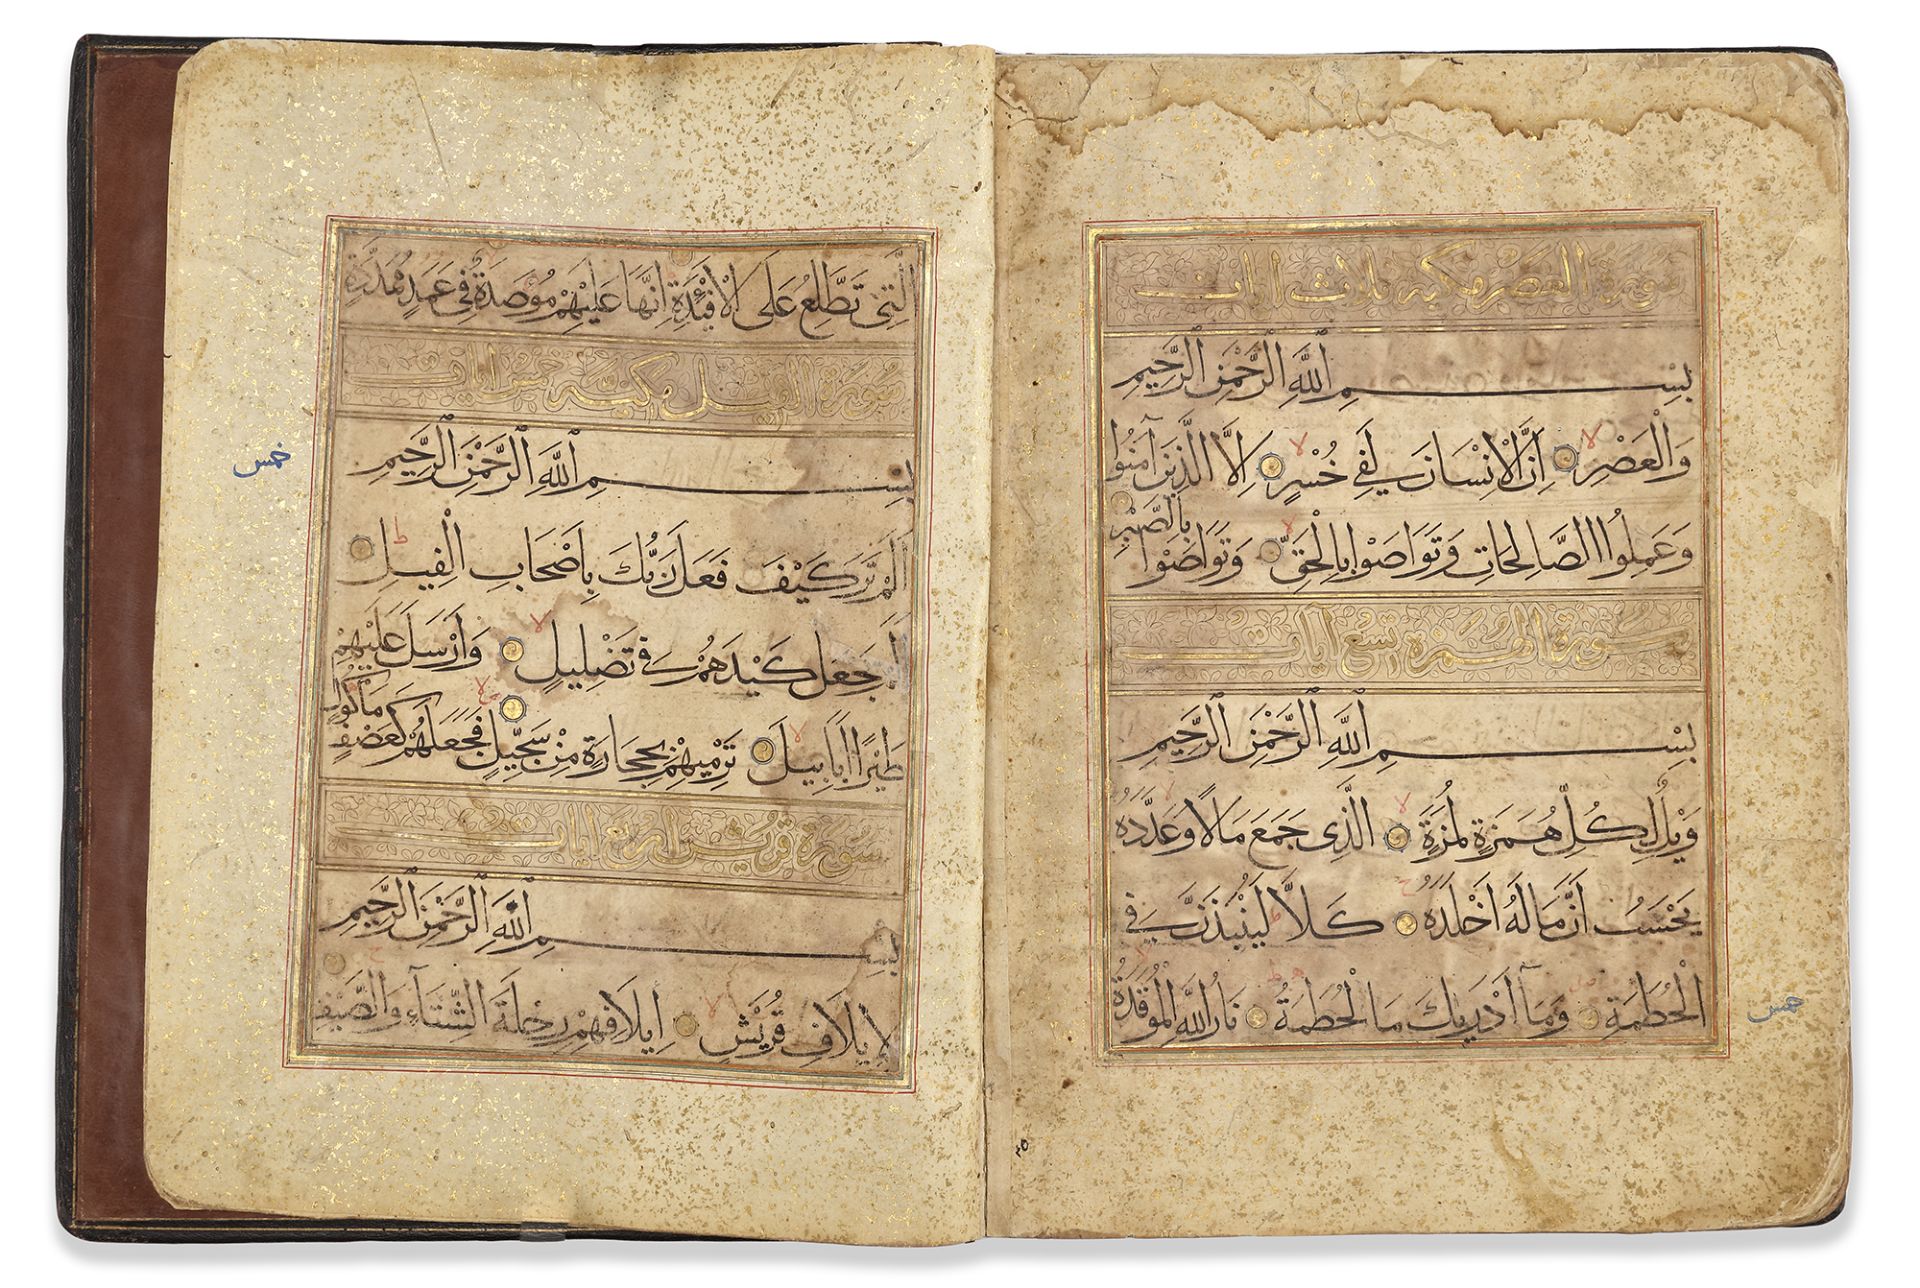 سورة العصر مكية ثلاث ايات
بِسْمِ اللَّهِ الرَّحْمٰنِ الرَّحِيمِ
وَالْعَصْرِ اِنَّ الْاِنْسَانَ لَفِي خُسْرٍ اِلَّا الَّذِينَ آمَنُوا
وَعَمِلُوا الصَّالِحَاتِ وَتَوَاصَوْا بِالْحَقِّ وَتَوَاصَوْا بِالصَّبْرِ
سورة الهمزة تسع آيات
بِسْمِ اللَّهِ الرَّحْمٰنِ الرَّحِيمِ
وَيْلٌ لِكُلِّ هُمَزَةٍ لُمَزَةٍ الَّذِى جَمَعَ مَالًا وَعَدَّدَهُ
يَحْسَبُ اَنَّ مَالَهُ اَخْلَدَهُ كَلَّا لَيُنْبَذَنَّ فِي
الْحُطَمَةِ وَمَآ اَدْرٰيكَ مَا الْحُطَمَةُ نَارُ اللَّهِ الْمُوقَدَةُ
خمس
الَّتِى تَطَّلِعُ عَلَى الْاَفْئِدَةِ اِنَّهَا عَلَيْهِمْ مُؤْصَدَةٌ فِي عَمَدٍ مُمَدَّدَةٍ
سورة الفيل مكية خمس ايات
بِسْمِ اللَّهِ الرَّحْمٰنِ الرَّحِيمِ
خمس
اَلَمْ تَرَ كَيْفَ فَعَلَ رَبُّكَ بِاَصْحَابِ الْفِيلِ
اَلَمْ يَجْعَلْ كَيْدَهُمْ فِي تَضْلِيلٍ وَاَرْسَلَ عَلَيْهِمْ
طَيْرًا اَبَابِيلَ تَرْمِيهِمْ بِحِجَارَةٍ مِنْ سِجِّيلٍ فَجَعَلَهُمْ كَعَصْفٍ مَأْكُولٍ
سورة قريش اربع ايات
بِسْمِ اللَّهِ الرَّحْمٰنِ الرَّحِيمِ
لِاِيلَافِ قُرَيْشٍ اِيلَافِهِمْ رِحْلَةَ الشِّتَآءِ وَالصَّيْفِ